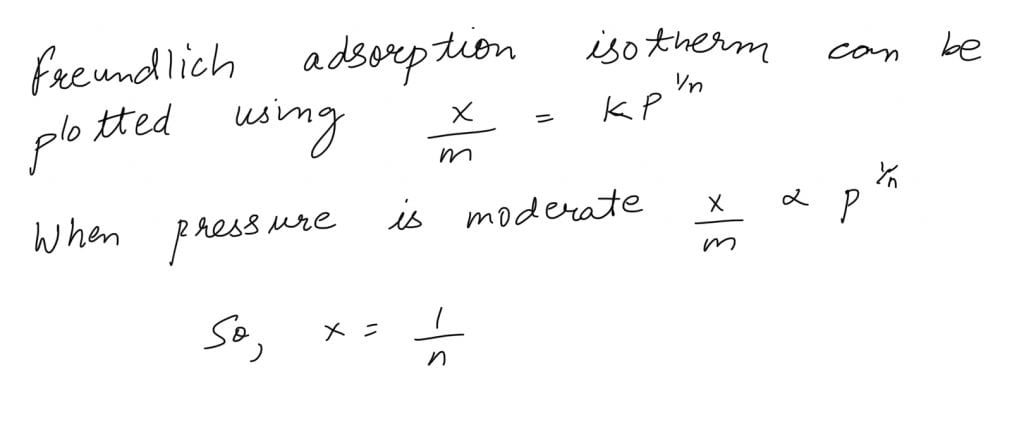 freundlich adsorption isotherm can be
plotted using x/m = kP^1/n
When pressure is moderate x/m ∝ p^1/n
So, x = 1/n